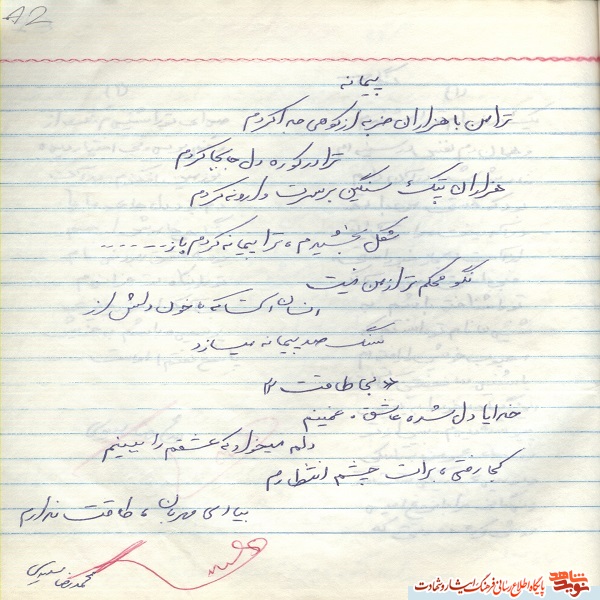 A2
پیمانه
ترا من با هزاران ضربه از کوهی جدا کردم
ترا در کوره دل جابجا کردم
هزاران پتک سنگین بر سرت وارونه کردم
شکل بخشیدم، ترا پیمانه کردم باز......
نگو محکم تر از من نیست
انسان است که با خون دلش از
سنگ صد پیمانه میسازد
« طاقت »
خدایا دل شده عاشق، غمینم
دلم میخواد که عشقم را ببینم
کجا رفتی، برات چشم انتظارم
بیا ای مهربان، طاقت ندارم
محمدرضا
نوید شاهد پایگاه اطلاع رسانی فرهنگ ایثار و شهادت